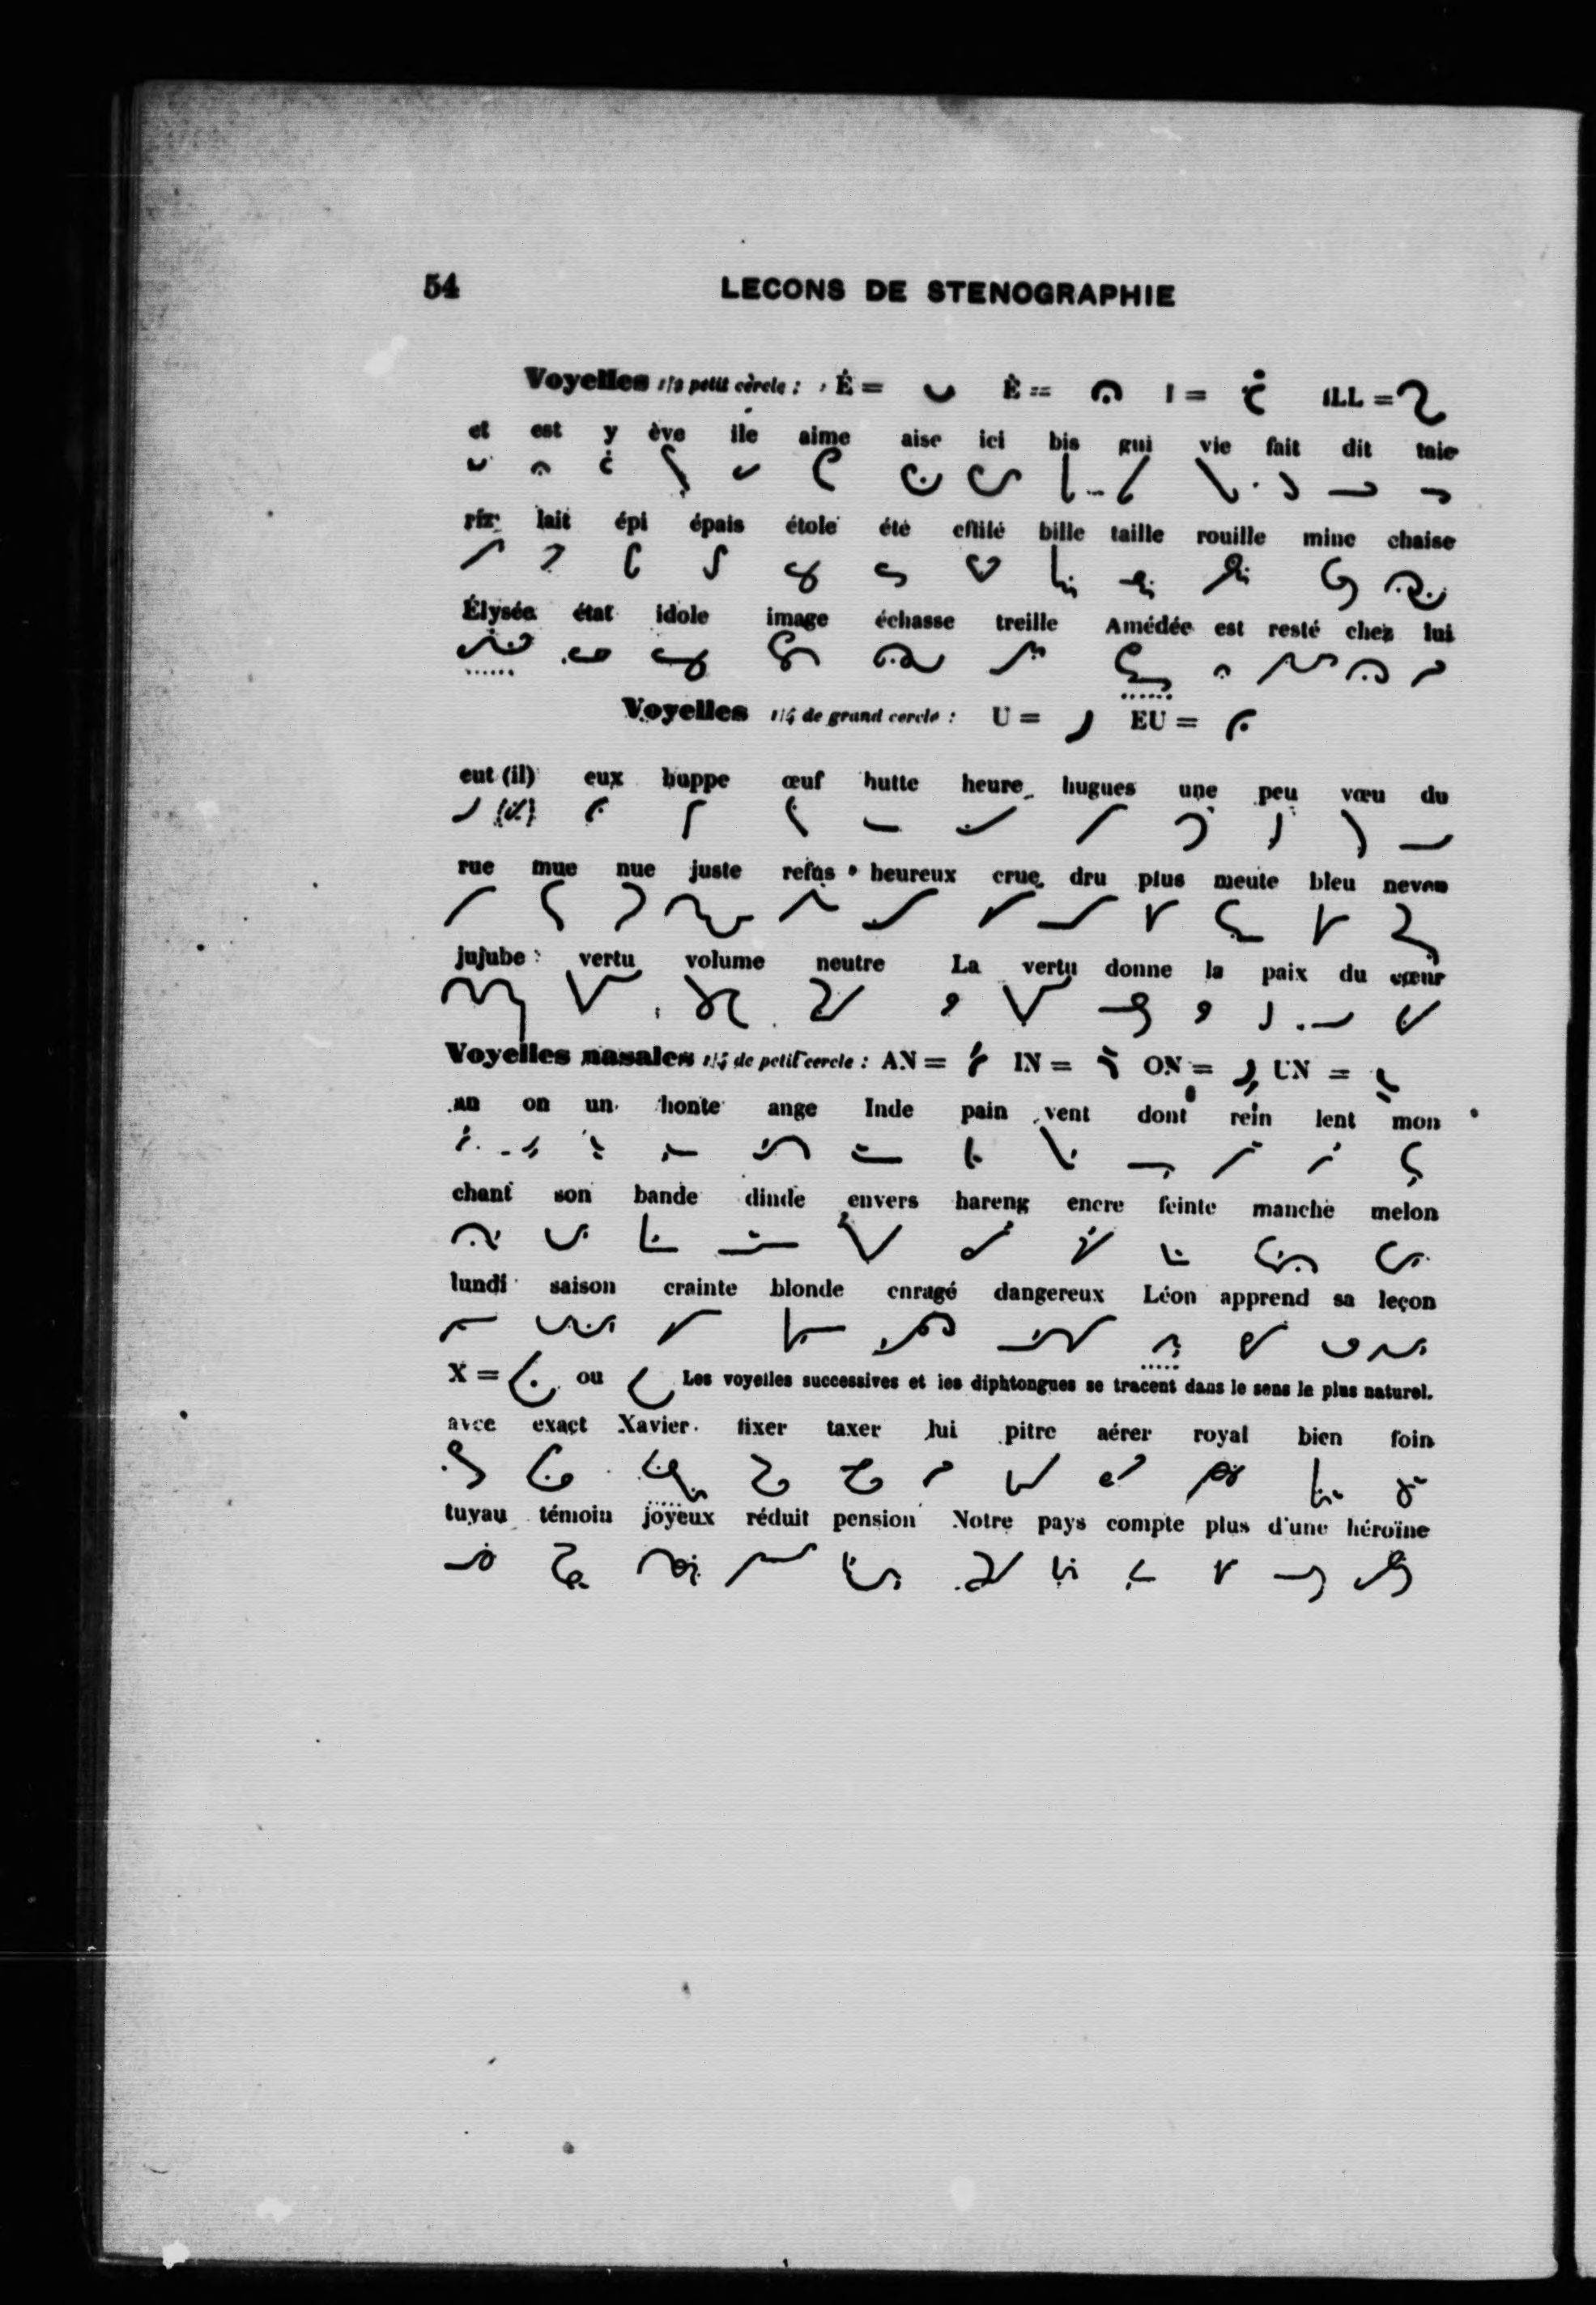 54 LECONS DE STENOGRAPHIE
Voyelles 1/2 petit cercle : É = È = I = ILL =
et est y ève île aime aise ici bis gui vie fait dit taie
rir lait épi épais étole été effilé bille taille rouille mine chaise
Élysée état idole image échasse treille Amédée est resté chez lui
Voyelles 1/4 de grand cercle : U = EU =
eut (il) eux huppe œuf hutte heure hugues une peu vœu du
rue mue nue juste refus heureux crue dru plus meute bleu neveu
jujube vertu volume neutre La vertu donne la paix du cœur
Voyelles nasales 1/4 de petit cercle : AN = IN = ON = UN =
an on un honte ange Inde pain vent dont rein lent mon
chant son bande dinde envers hareng encre feinte manche melon
lundi saison crainte blonde enragé dangereux Léon apprend sa leçon
X = ou Les voyelles successives et les diphtongues se tracent dans le sens le plus naturel.
avec exact Xavier fixer taxer lui pitre aérer royal bien foin
tuyau témoin joyeux réduit pension Notre pays compte plus d'une héroïne